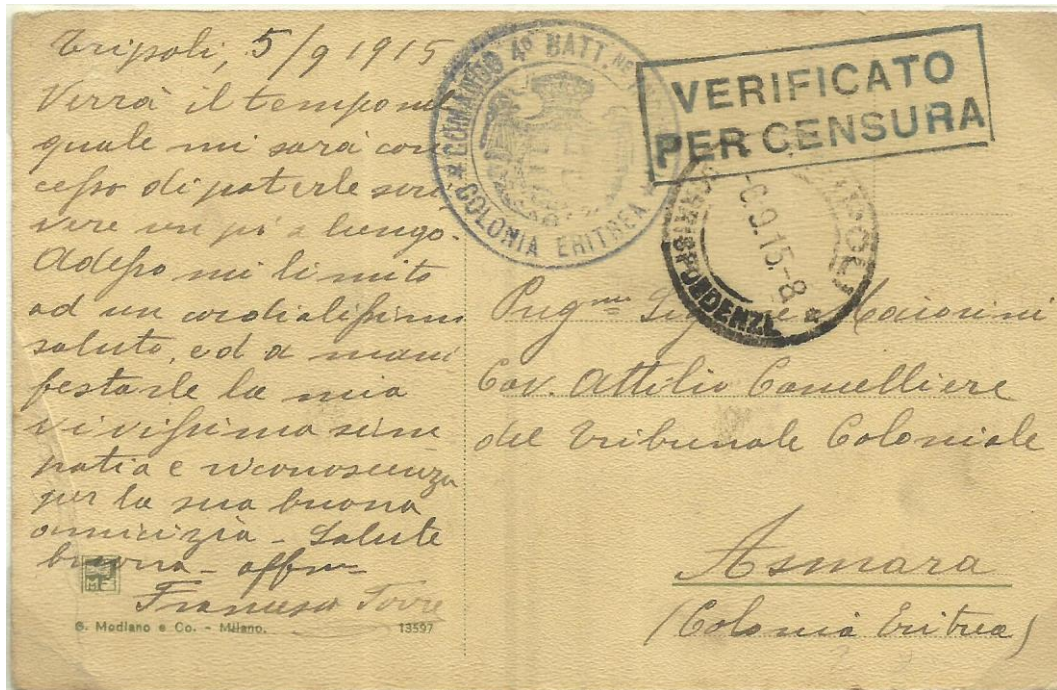 Tripoli, 5/9 1915
Verrà il tempo nel
quale mi sarà con
cesso di poterle scri
vere un pò a lungo.
Adesso mi limito
ad un cordialissimo
saluto, ed a mani
festarle la mia
vivissima sim
patia e riconoscenza
per la sua buona
amicizia - Salute
buona - affmo
Francesco Torre
G. Modiano e Co. - Milano.
13597
COMANDO 4° BATT.NE
COLONIA ERITREA
VERIFICATO
PER CENSURA
TRIPOLI
CORRISPONDENZE
6.9.15-8
Preg.mo Signore Maiorini
Cav. Attilio Cancelliere
del Tribunale Coloniale
Asmara
(Colonia Eritrea)